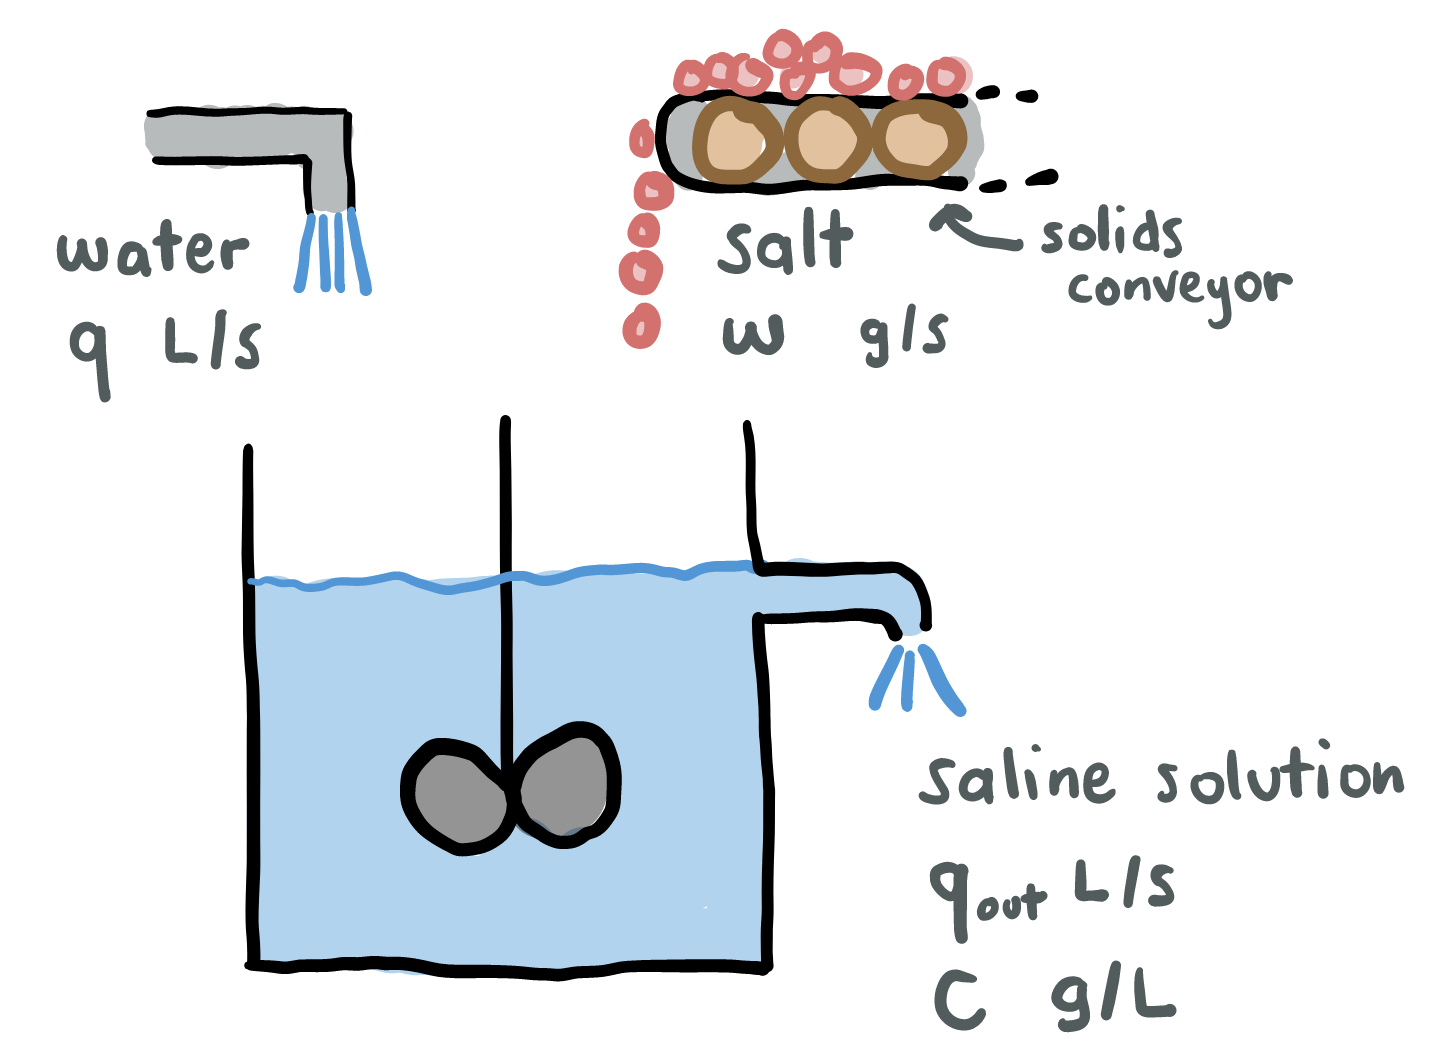 water
q L/s
salt
w g/s
solids
conveyor
saline solution
qout L/s
C g/L